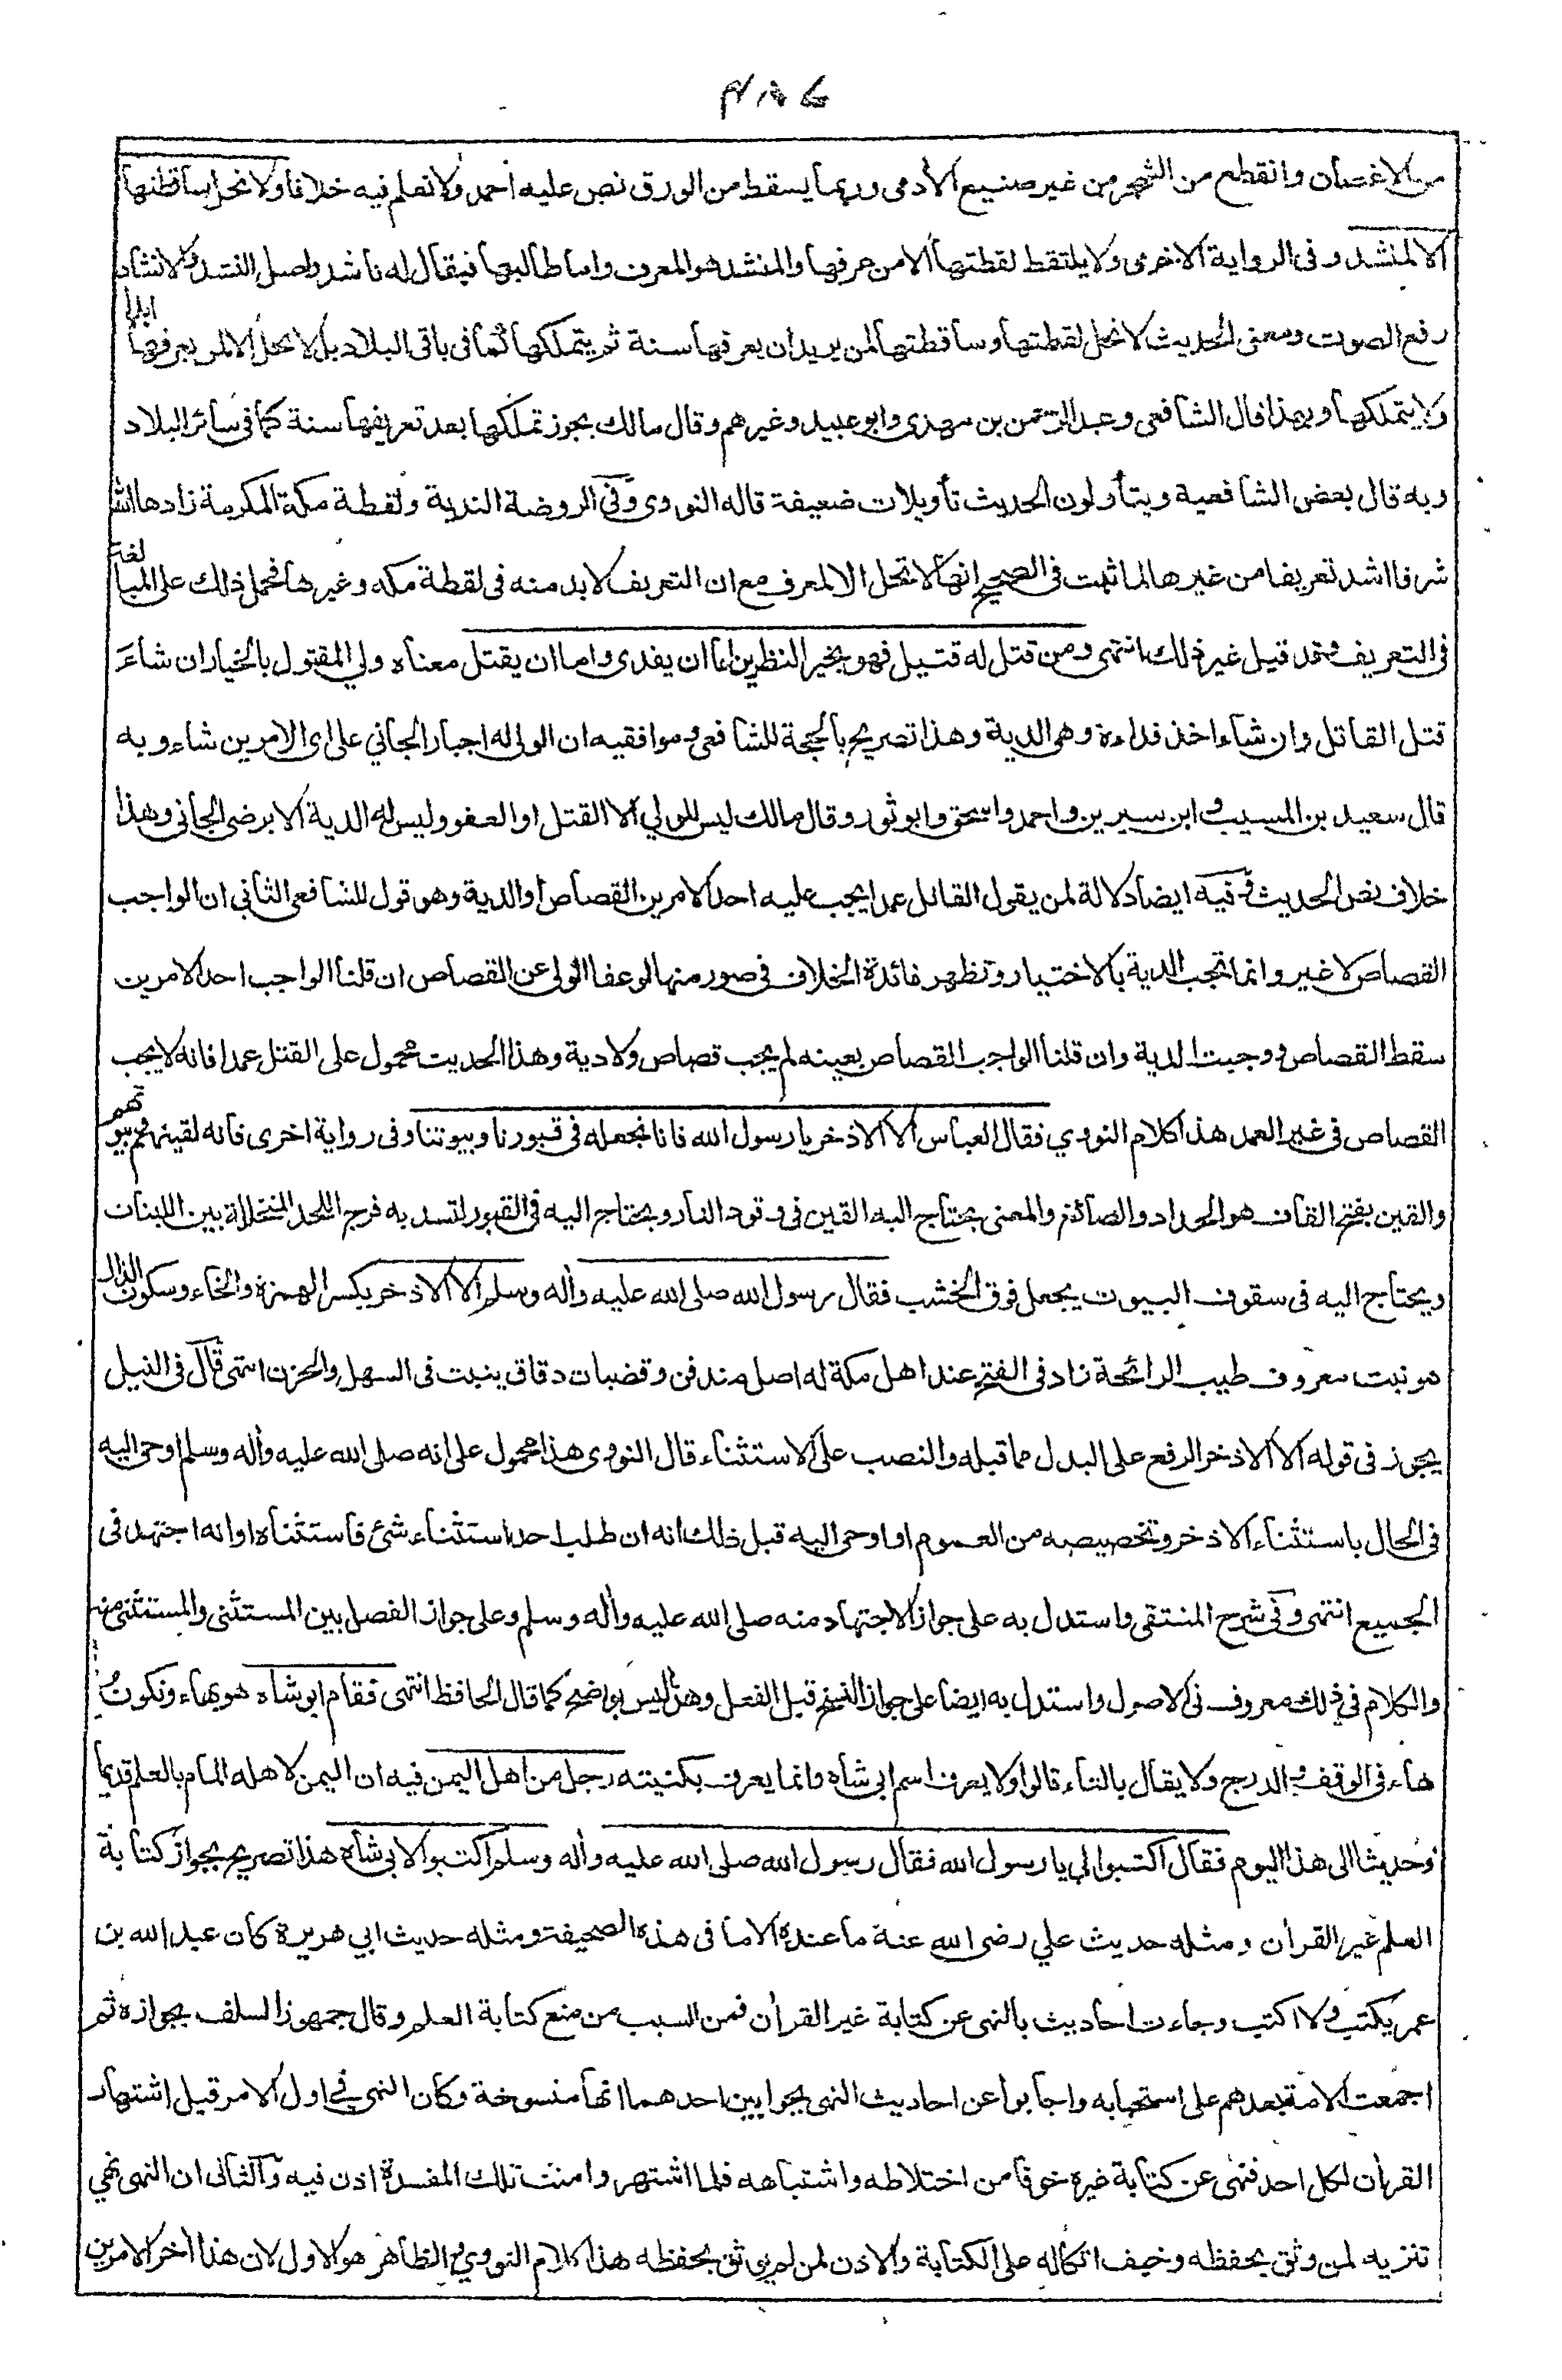 من الاغصان وانقطع من الشجر من غير صنيع الأدمى وربما يسقط من الورق نص عليه أحمد ولا نعلم فيه خلافا ولا تحل ساقطتها
الا لمنشد وفى الرواية الاخرى ولا يلتقط لقطتها الا من عرفها والمنشد هو المعرف واما طالبها فيقال له ناشد واصل النشد والانشاد
رفع الصوت ومعنى الحديث لا تحل لقطتها وساقطتها لمن يريد ان يعرفها سنة ثم يتملكها كما فى باقى البلاد بل لا تحل الا لمن يعرفها ابدا
ولا يتملكها وبهذا قال الشافعى وعبد الرحمن بن مهدى وابو عبيد وغيرهم وقال مالك يجوز تملكها بعد تعريفها سنة كما فى سائر البلاد
وبه قال بعض الشافعية ويتأولون الحديث تأويلات ضعيفة قاله النووى وفى الروضة الندية ولقطة مكة المكرمة زادها الله
شرفا اشد تعريفا من غيرها لما ثبت فى الصحيح انها لا تحل الا لمعرف مع ان التعريف لا بد منه فى لقطة مكه وغيرها فحمل ذلك على المبالغة
فى التعريف وقد قيل غير ذلك انتهى ومن قتل له قتيل فهو بخير النظرين اما ان يفدى واما ان يقتل معناه ولي المقتول بالخيار ان شاء
قتل القاتل وان شاء اخذ فداءه وهى الدية وهذا تصريح بالحجة للشافعى وموافقيه ان الولى له اجبار الجاني على اى الامرين شاء وبه
قال سعيد بن المسيب وابن سيرين واحمد واسحق وابو ثور وقال مالك ليس للولي الا القتل او العفو وليس له الدية الا برضى الجانى وهذا
خلاف نص الحديث وفيه ايضا دلالة لمن يقول القاتل عمدا يجب عليه احد الامرين القصاص او الدية وهو قول للشافعى الثانى ان الواجب
القصاص لا غير وانما تجب الدية بالاختيار وتظهر فائدة الخلاف فى صور منها لو عفا الولى عن القصاص ان قلنا الواجب احد الامرين
سقط القصاص ووجبت الدية وان قلنا الواجب القصاص بعينه لم يجب قصاص ولا دية وهذا الحديث محمول على القتل عمدا فانه لا يجب
القصاص فى غير العمد هذا كلام النووي فقال العباس الا الاذخر يا رسول الله فانا نجعله فى قبورنا وبيوتنا وفى رواية اخرى فانه لقينهم وبيوتهم
والقين بفتح القاف هو الحداد والصائغ والمعنى يحتاج اليه القين فى وقود النار ويحتاج اليه فى القبور لتسد به فرج اللحد المتخللة بين اللبنات
ويحتاج اليه فى سقوف البيوت يجعل فوق الخشب فقال رسول الله صلى الله عليه وأله وسلم الا الاذخر بكسر الهمزة والخاء وسكون الذال
هو نبت معروف طيب الرائحة زاد فى الفتح عند اهل مكة له اصل مندفن وقضبان دقاق ينبت فى السهل والحزن انتهى قال فى النيل
يجوز فى قوله الا الاذخر الرفع على البدل مما قبله والنصب على الاستثناء قال النووى هذا محمول على انه صلى الله عليه وأله وسلم اوحى اليه
فى الحال باستثناء الاذخر وتخصيصه من العموم او اوحى اليه قبل ذلك انه ان طلب احد استثناء شئ فاستثناه او انه اجتهد فى
الجميع انتهى وفى شرح المنتقى واستدل به على جواز الاجتهاد منه صلى الله عليه وأله وسلم وعلى جواز الفصل بين المستثنى والمستثنى منه
والكلام فى ذلك معروف فى الاصول واستدل به ايضا على جواز النسخ قبل الفعل وهذا ليس بواضح كما قال الحافظ انتهى فقام ابو شاه هو بهاء وتكون
هاء فى الوقف والدرج ولا يقال بالتاء قالوا ولا يعرف اسم ابى شاه وانما يعرف بكنيته رجل من اهل اليمن فيه ان اليمن لاهله المام بالعلم قديما
وحديثا الى هذا اليوم فقال اكتبوا لي يا رسول الله فقال رسول الله صلى الله عليه وأله وسلم اكتبوا لابى شاه هذا تصريح بجواز كتابة
العلم غير القرأن ومثله حديث علي رضى الله عنه ما عنده الا ما فى هذه الصحيفة ومثله حديث ابي هريرة كان عبد الله بن
عمر يكتب ولا اكتب وجاءت احاديث بالنهى عن كتابة غير القرأن فمن السبب من منع كتابة العلم وقال جمهور السلف بجوازه ثم
اجمعت الامة بعدهم على استحبابه واجابوا عن احاديث النهى بجوابين احدهما انها منسوخة وكان النهى في اول الامر قبل اشتهار
القرأن لكل احد فنهى عن كتابة غيره خوفا من اختلاطه واشتباهه فلما اشتهر وامنت تلك المفسدة اذن فيه والثانى ان النهى نهي
تنزيه لمن وثق بحفظه وخيف اتكاله على الكتابة والاذن لمن لم يوثق بحفظه هذا كلام النووي والظاهر هو الاول لان هذا أخر الامرين